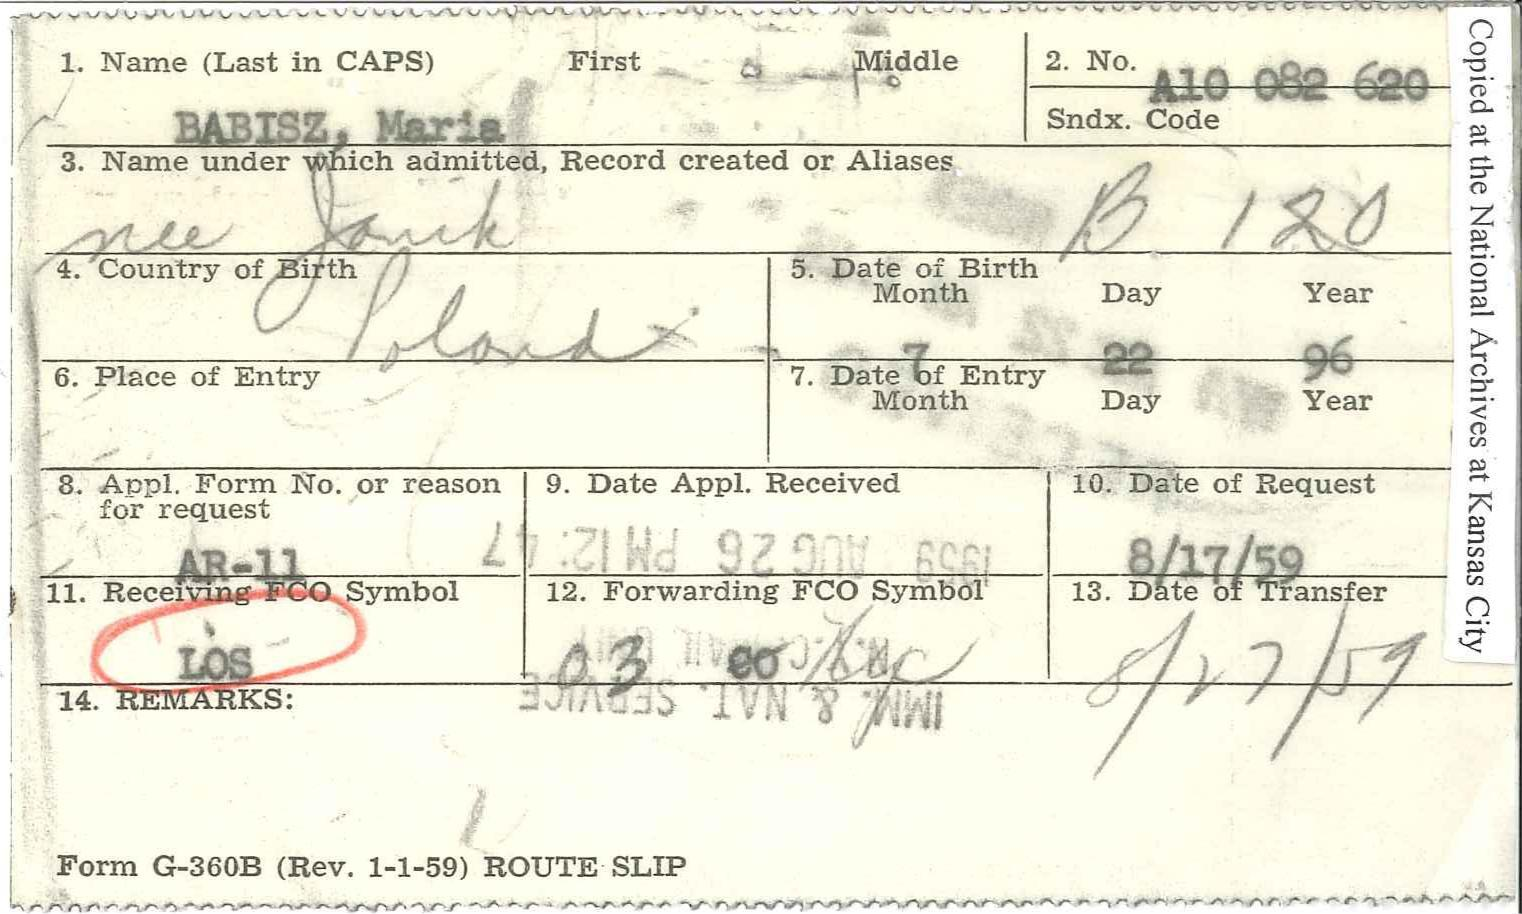 1. Name (Last in CAPS) First Middle
2. No. A10 082 620
BABISZ, Maria
Sndx. Code
3. Name under which admitted, Record created or Aliases
nee Janik B 120
4. Country of Birth
Poland
5. Date of Birth
Month Day Year
7 22 96
6. Place of Entry
7. Date of Entry
Month Day Year
8. Appl. Form No. or reason
for request
AR-11
9. Date Appl. Received
1959 AUG 26 PM 12:47
10. Date of Request
8/17/59
11. Receiving FCO Symbol
LOS
12. Forwarding FCO Symbol
03 co
IMM. & NAT. SERVICE
13. Date of Transfer
8/27/59
14. REMARKS:
Form G-360B (Rev. 1-1-59) ROUTE SLIP
Copied at the National Archives at Kansas City